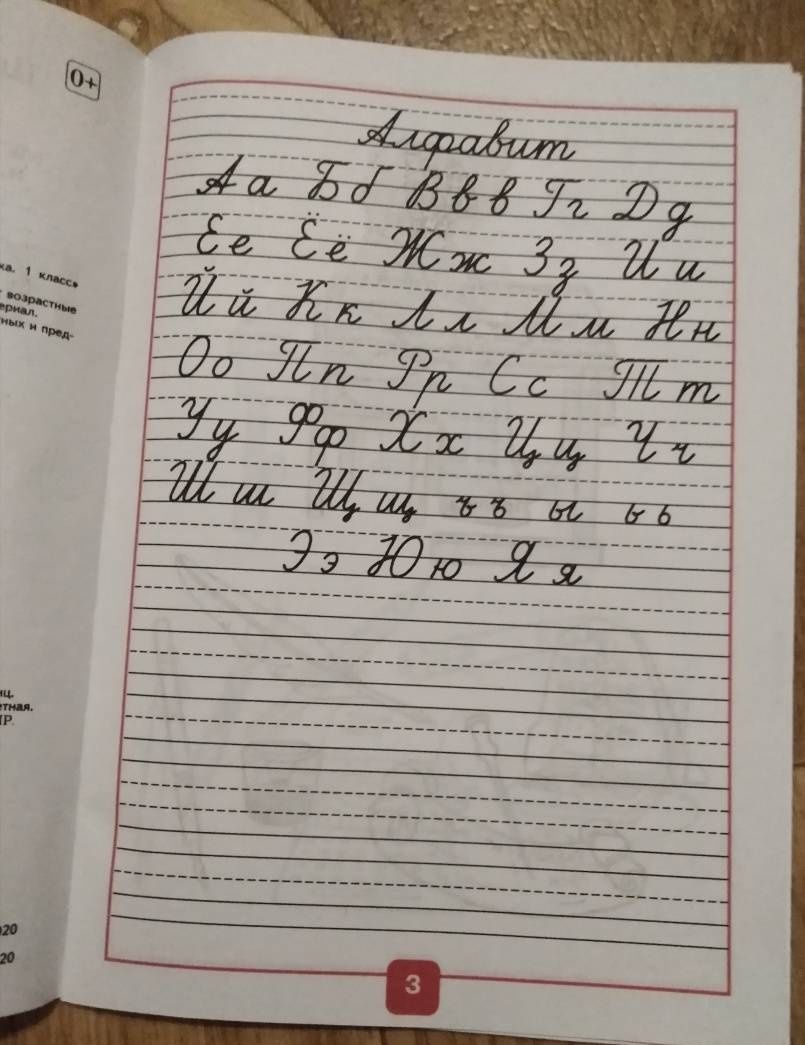 0+
Алфавит
Аа Бб Ввв Гг Дд
Ее Ёё Жж Зз Ии
Йй Кк Лл Мм Нн
Оо Пп Рр Сс Тт
Уу Фф Хх Цц Чч
Шш Щщ ъъ ы ьь
Ээ Юю Яя
1 класс»
возрастные
ных и пред-
IP
20
20
3